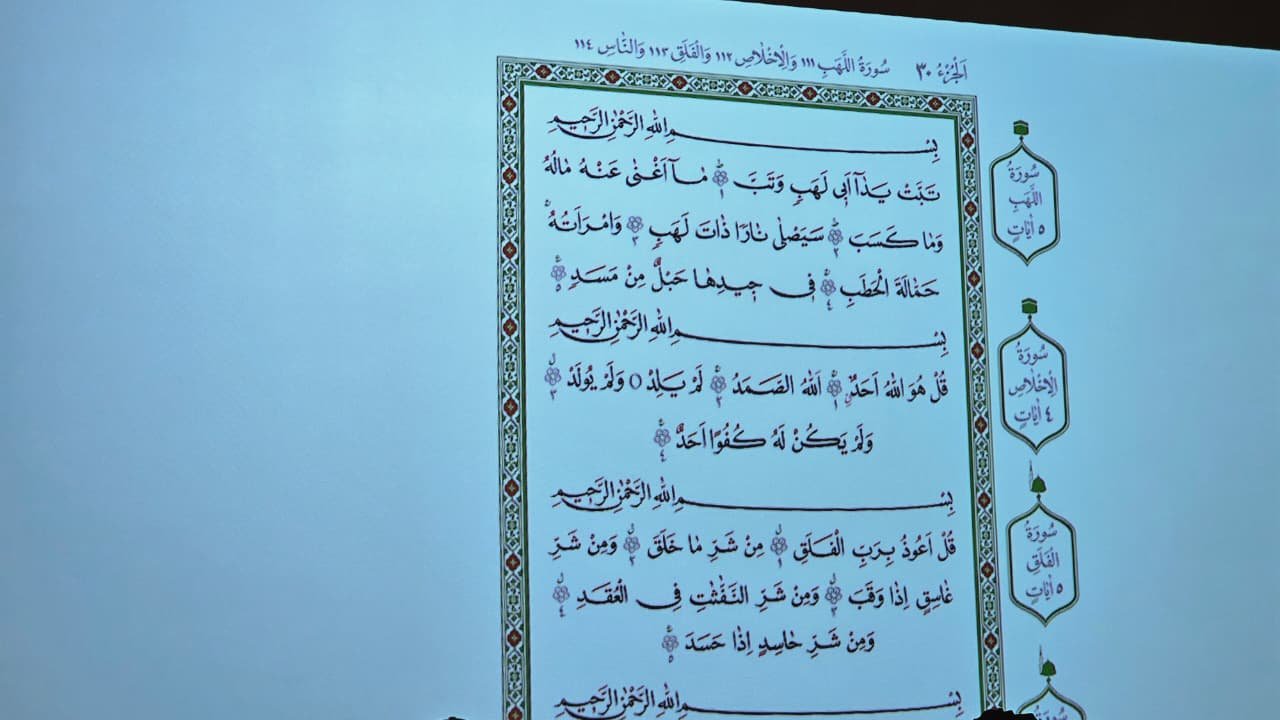 اَلْجُزْءُ ٣٠ سُورَةُ اللَّهَبِ ١١١ وَالْاِخْلَاصِ ١١٢ وَالْفَلَقِ ١١٣ وَالنَّاسِ ١١٤
بِسْمِ اللهِ الرَّحْمٰنِ الرَّحِيمِ
تَبَّتْ يَدَٓا اَبِي لَهَبٍ وَتَبَّ ١ مَٓا اَغْنٰى عَنْهُ مَالُهُ
وَمَا كَسَبَ ٢ سَيَصْلٰى نَارًا ذَاتَ لَهَبٍ ٣ وَامْرَاَتُهُ
حَمَّالَةَ الْحَطَبِ ٤ فِي جِيدِهَا حَبْلٌ مِنْ مَسَدٍ ٥
بِسْمِ اللهِ الرَّحْمٰنِ الرَّحِيمِ
قُلْ هُوَ اللهُ اَحَدٌ ١ اَللهُ الصَّمَدُ ٢ لَمْ يَلِدْ وَلَمْ يُولَدْ ٣
وَلَمْ يَكُنْ لَهُ كُفُوًا اَحَدٌ ٤
بِسْمِ اللهِ الرَّحْمٰنِ الرَّحِيمِ
قُلْ اَعُوذُ بِرَبِّ الْفَلَقِ ١ مِنْ شَرِّ مَا خَلَقَ ٢ وَمِنْ شَرِّ
غَاسِقٍ اِذَا وَقَبَ ٣ وَمِنْ شَرِّ النَّفَّاثَاتِ فِي الْعُقَدِ ٤
وَمِنْ شَرِّ حَاسِدٍ اِذَا حَسَدَ ٥
بِسْمِ اللهِ الرَّحْمٰنِ الرَّحِيمِ
سُورَةُ
اللَّهَبِ
٥ اٰيَاتٍ
سُورَةُ
الْاِخْلَاصِ
٤ اٰيَاتٍ
سُورَةُ
الْفَلَقِ
٥ اٰيَاتٍ
سُورَةُ